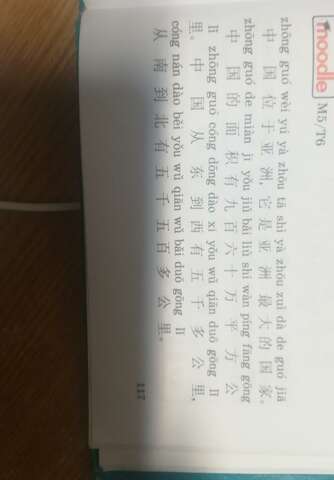 moodle M5/T6
zhōng guó wèi yú yà zhōu tā shì yà zhōu zuì dà de guó jiā
中国位于亚洲，它是亚洲最大的国家。
zhōng guó de miàn jī yǒu jiǔ bǎi liù shí wàn píng fāng gōng
中国的面积有九百六十万平方公
lǐ zhōng guó cóng dōng dào xī yǒu wǔ qiān duō gōng lǐ
里。中国从东到西有五千多公里，
cóng nán dào běi yǒu wǔ qiān wǔ bǎi duō gōng lǐ
从南到北有五千五百多公里。
117